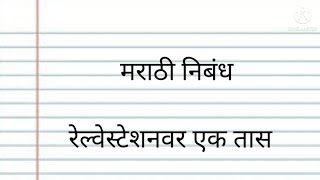 मराठी निबंध
रेल्वेस्टेशनवर एक तास